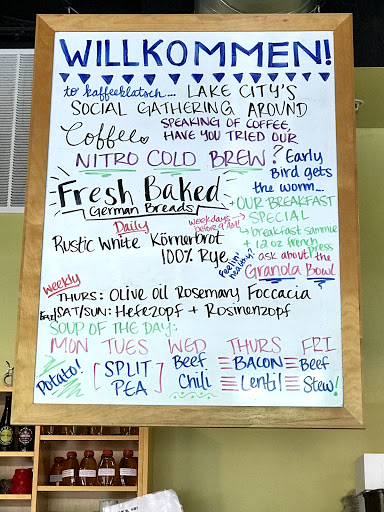 WILLKOMMEN!
to kaffeeklatsch... LAKE CITY'S
SOCIAL GATHERING AROUND
Coffee.
SPEAKING OF COFFEE,
HAVE YOU TRIED OUR
NITRO COLD BREW?
Early
Bird gets
the worm...
+OUR BREAKFAST
SPECIAL
weekdays
before 9 AM!
breakfast sammie
+ 12 oz french
press
Feelin'
healthy?
ask about the
Granola Bowl
Fresh Baked
German Breads
Daily
Rustic White Körnerbrot
100% Rye
Weekly
THURS: Olive Oil Rosemary Foccacia
SAT/SUN: Hefezopf + Rosinenzopf
SOUP OF THE DAY:
MON TUES WED THURS FRI
Potato!
[SPLIT
PEA]
Beef
Chili
BACON
Lentil
Beef
Stew!